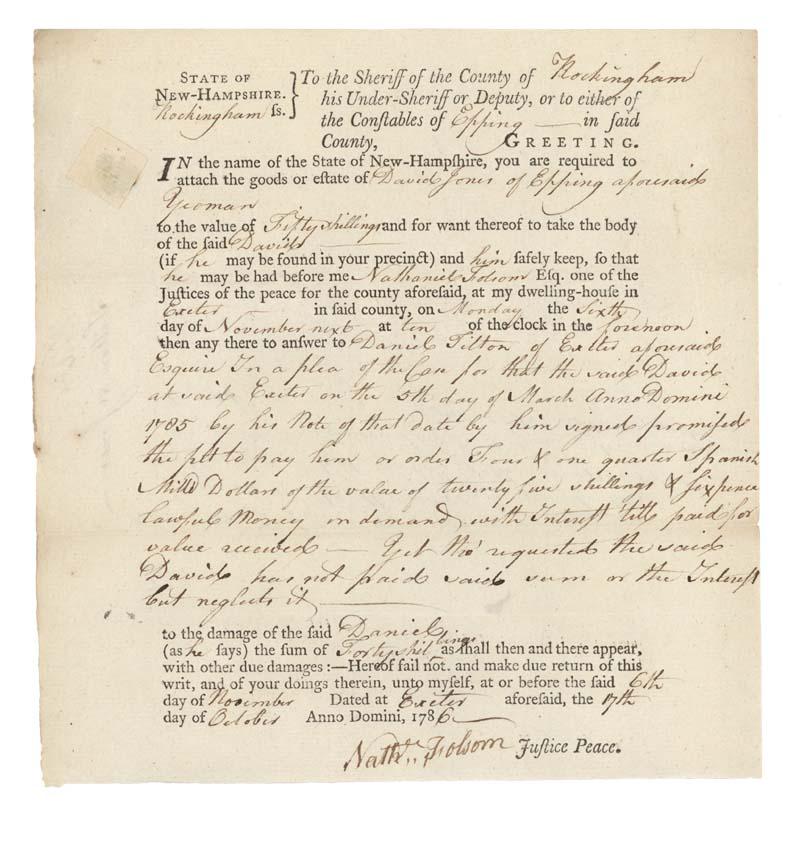 STATE OF
NEW-HAMPSHIRE.
Rockingham ſs.
To the Sheriff of the County of Rockingham
his Under-Sheriff or Deputy, or to either of
the Conſtables of Epping — in ſaid
County, GREETING.
IN the name of the State of New-Hampſhire, you are required to
attach the goods or eſtate of David Jones of Epping aforesaid
Yeoman
to the value of Fifty shillings and for want thereof to take the body
of the ſaid David
(if he may be found in your precinct) and him ſafely keep, ſo that
he may be had before me Nathaniel Folsom Eſq. one of the
Juſtices of the peace for the county aforeſaid, at my dwelling-houſe in
Exeter in ſaid county, on Monday the Sixth
day of November next at ten of the clock in the forenoon
then any there to anſwer to Daniel Tilton of Exeter aforesaid
Esquire In a plea of the Case for that the said David
at said Exeter on the 5th day of March Anno Domini
1785 by his Note of that date by him signed promised
the plt to pay him or order Four & one quarter Spanish
Milld Dollars of the value of twenty five shillings & sixpence
lawful Money on demand with Interest till paid for
value received — Yet tho' requested the said
David has not paid said sum or the Interest
but neglects it —
to the damage of the ſaid Daniel
(as he ſays) the ſum of Forty shillings as ſhall then and there appear,
with other due damages :—Hereof fail not. and make due return of this
writ, and of your doings therein, unto myſelf, at or before the ſaid 6th
day of November Dated at Exeter aforeſaid, the 17th
day of October Anno Domini, 1786
Nathl. Folsom Juſtice Peace.